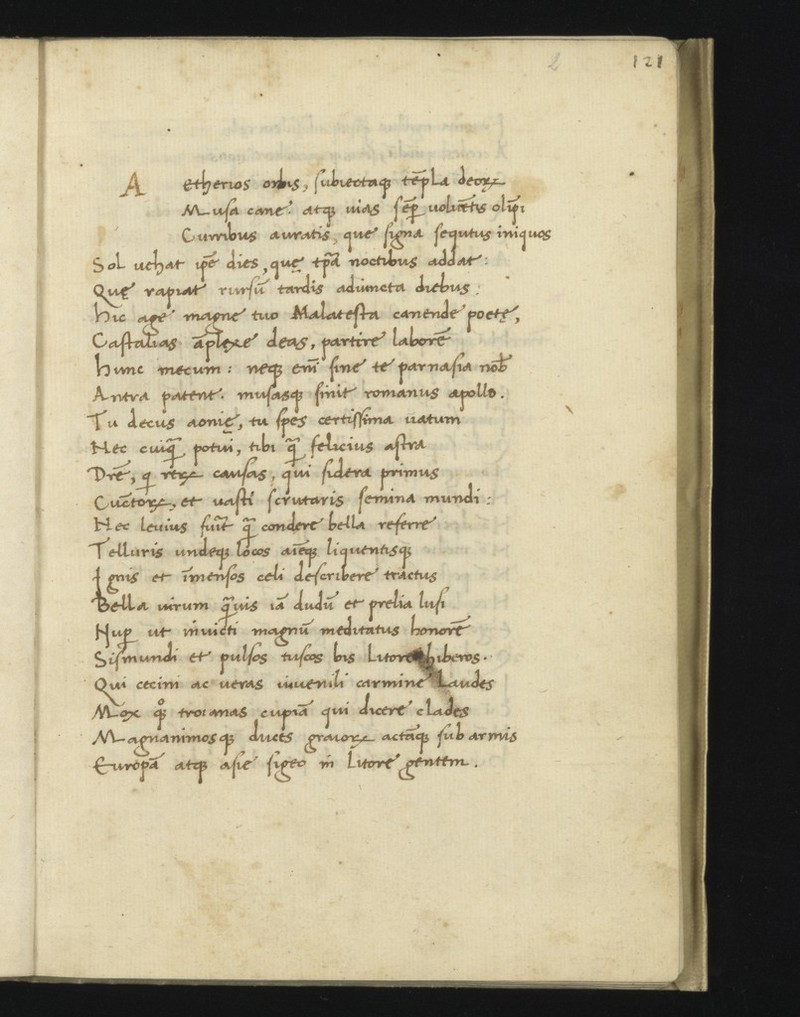 2 121
Aetherios orbis, subiectaq; tēpla deoꝝ
Musa cane. atq; uias sēꝑ uoluētis olīpi
Curribus auratis, que signa sequtus iniquos
Sol uehat ip̄e dies, quę tp̄a noctibus addat:
Quę rapiat rursū tardis adiuncta diebus:
Hic age magne tuo Malatesta canende poetę,
Castalias āplexe deas, partire laborē
Hunc mecum: neq; em̄ sine te parnasia nob̄
Antra patent. musasq; sinit romanus apollo.
Tu decus aonię, tu sp̄es certissima uatum
Nec cuiq̄ potui, tibi q̄ felicius astra
Dr̄e, q rerꝝ causas, qui sidera primus
Cūctorꝝ, et uasti scrutaris semina mundi:
Nec leuius fuit̄ q̄ condere bella referre
Telluris undeq; locos aīeq; liquentisq;
Ignis et īmensos celi describere tractus
Bella uirum q̄uis iā dudū et prelia lusi
Nuꝑ ut inuicti magnū meditatus honorē
Sismundi et pulsos tuscos bis litore hiberos.
Qui cecini ac ueras iuuenili carmine laudes
Mox q̊; troianas cupiā qui dicere clades
Magnanimosq; duces graiorꝝ actāq; sub armis
Europā atq; asie sigeo in litore gentem.